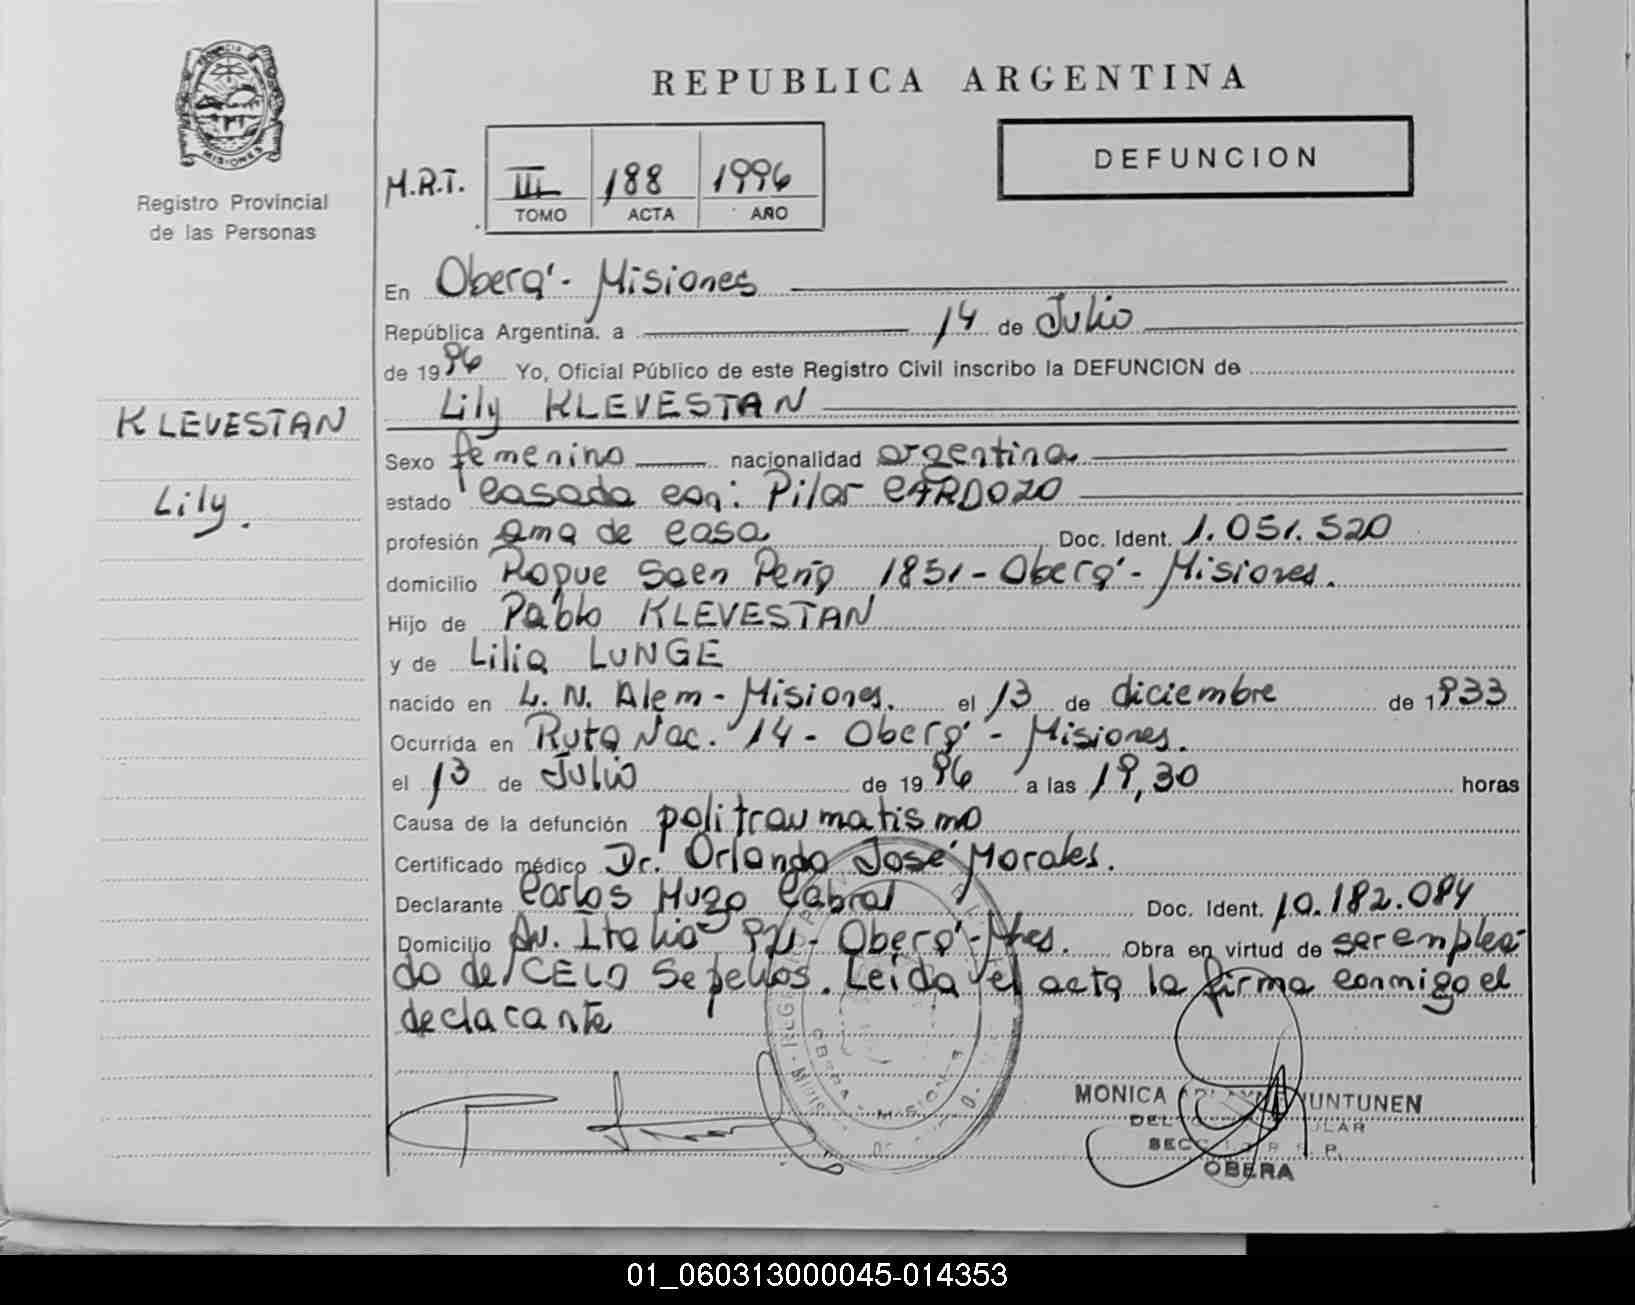 PROVINCIA DE
MISIONES
Registro Provincial
de las Personas
KLEVESTAN
Lily.
REPUBLICA ARGENTINA
M.R.T.
III 188 1996
TOMO ACTA AÑO
DEFUNCION
En Oberá - Misiones
República Argentina. a 14 de Julio
de 1996 Yo, Oficial Público de este Registro Civil inscribo la DEFUNCION de
Lily KLEVESTAN
Sexo femenino nacionalidad argentina
estado casada con: Pilar CARDOZO
profesión ama de casa Doc. Ident. 1.051.520
domicilio Roque Saen Peña 1851 - Oberá - Misiones.
Hijo de Pablo KLEVESTAN
y de Lilia LUNGE
nacido en L. N. Alem - Misiones. el 13 de diciembre de 1933
Ocurrida en Ruta Nac. 14 - Oberá - Misiones.
el 13 de Julio de 1996 a las 19,30 horas
Causa de la defunción politraumatismo
Certificado médico Dr. Orlando José Morales.
Declarante Carlos Hugo Cabral Doc. Ident. 10.182.084
Domicilio Av. Italia - Oberá - Mnes. Obra en virtud de ser emplea-
do de CELO Sepelios. Leída el acta la firma conmigo el
declarante
MONICA UNTUNEN
OBERA
01_060313000045-014353